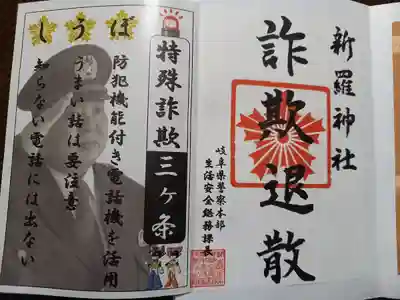 新羅神社
詐欺退散
岐阜県警察本部
生活安全総務課長
特殊詐欺三ヶ条
ぼうし
防犯機能付き電話機を活用
うまい話は要注意
知らない電話には出ない